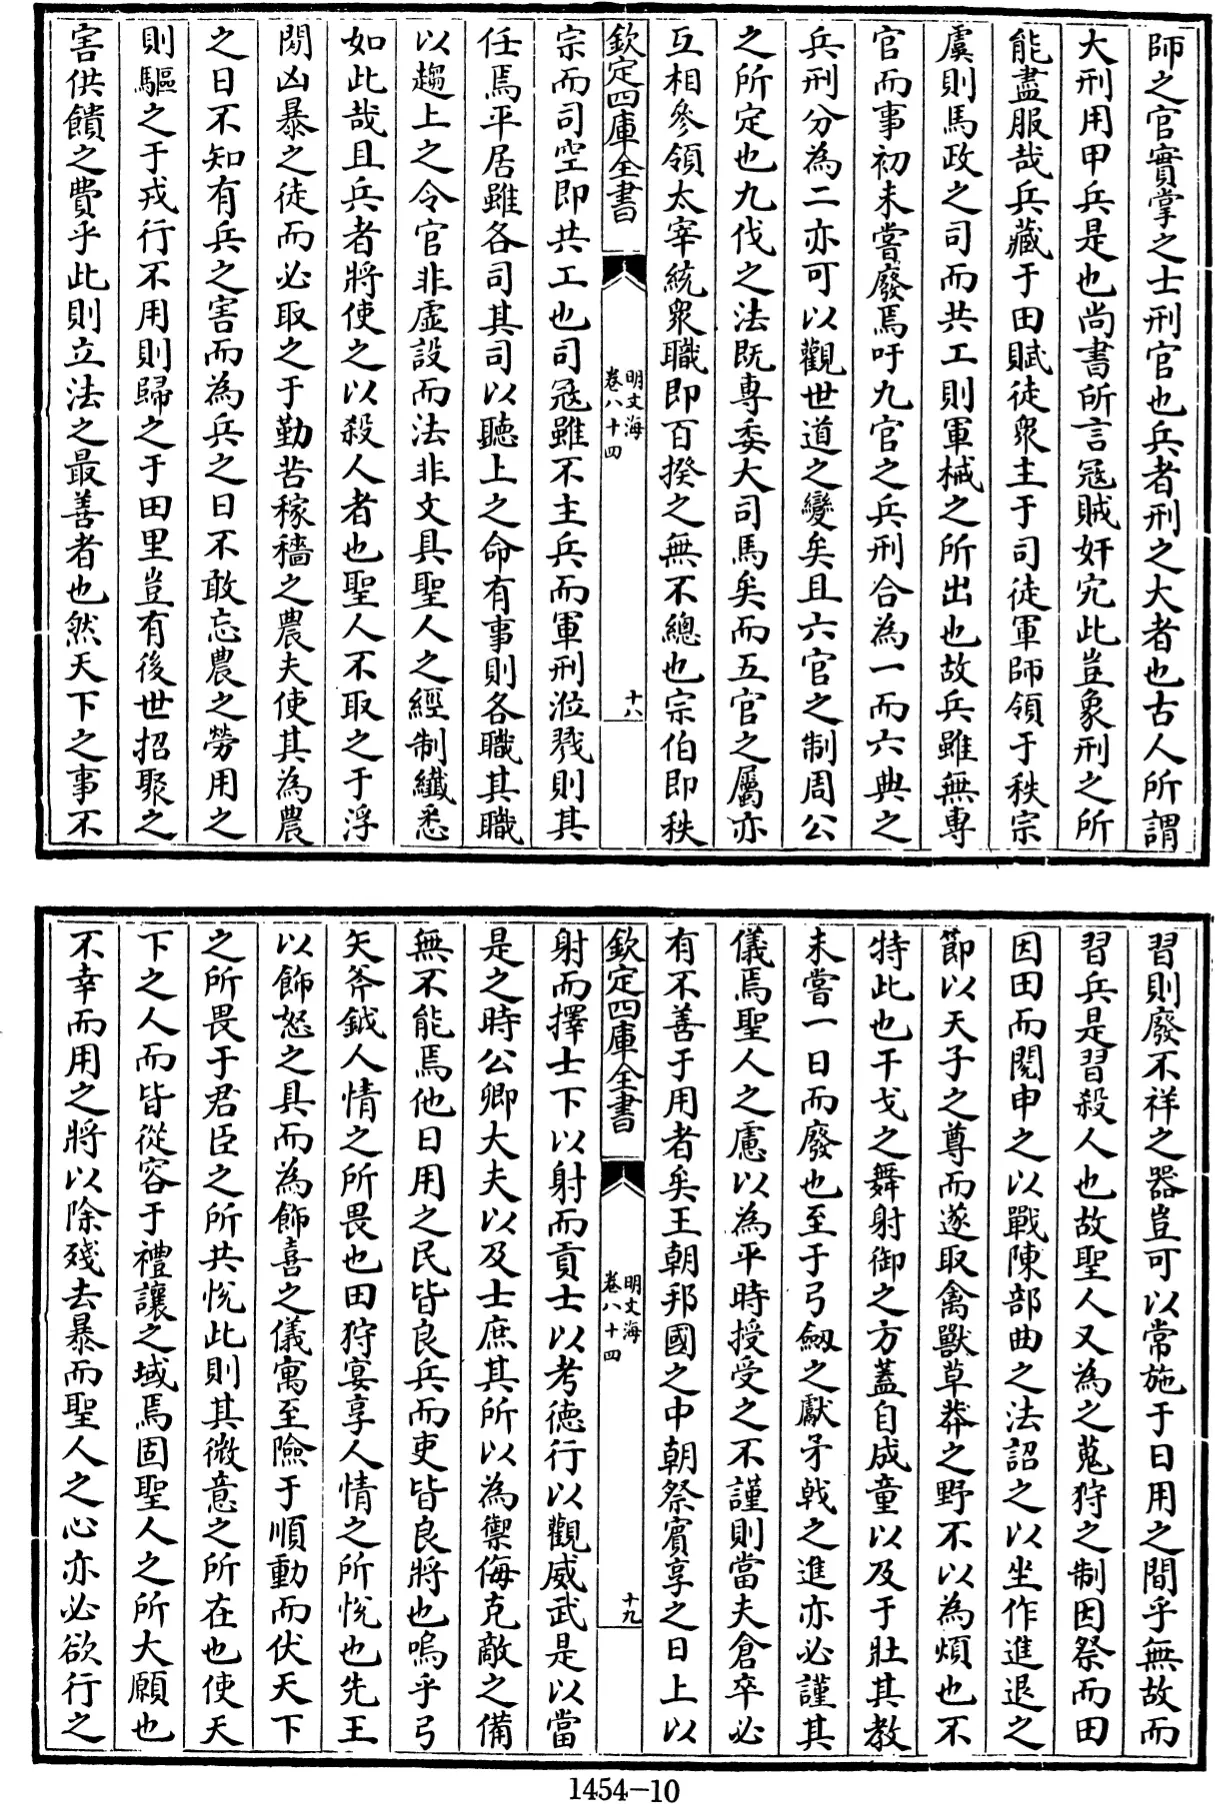 師之官實掌之士刑官也兵者刑之大者也古人所謂
大刑用甲兵是也尚書所言冦賊奸宄此豈象刑之所
能盡服哉兵藏于田賦徒衆主于司徒軍師領于秩宗
虞則馬政之司而共工則軍械之所出也故兵雖無專
官而事初未嘗廢焉吁九官之兵刑合為一而六典之
兵刑分為二亦可以觀世道之變矣且六官之制周公
之所定也九伐之法既專委大司馬矣而五官之屬亦
互相參領太宰統衆職即百揆之無不總也宗伯即秩
欽定四庫全書
明文海
卷八十四
十八
宗而司空即共工也司冦雖不主兵而軍刑涖戮則其
任焉平居雖各司其司以聽上之命有事則各職其職
以趨上之令官非虛設而法非文具聖人之經制纖悉
如此哉且兵者將使之以殺人者也聖人不取之于浮
閒凶暴之徒而必取之于勤苦稼穡之農夫使其為農
之日不知有兵之害而為兵之日不敢忘農之勞用之
則驅之于戎行不用則歸之于田里豈有後世招聚之
害供饋之費乎此則立法之最善者也然天下之事不
習則廢不祥之器豈可以常施于日用之間乎無故而
習兵是習殺人也故聖人又為之蒐狩之制因祭而田
因田而閱申之以戰陳部曲之法詔之以坐作進退之
節以天子之尊而遂取禽獸草莽之野不以為煩也不
特此也干戈之舞射御之方蓋自成童以及于壯其教
未嘗一日而廢也至于弓劔之獻矛戟之進亦必謹其
儀焉聖人之慮以為平時授受之不謹則當夫倉卒必
有不善于用者矣王朝邦國之中朝祭賓享之日上以
欽定四庫全書
明文海
卷八十四
十九
射而擇士下以射而貢士以考德行以觀威武是以當
是之時公卿大夫以及士庶其所以為禦侮克敵之備
無不能焉他日用之民皆良兵而吏皆良將也嗚乎弓
矢斧鉞人情之所畏也田狩宴享人情之所悅也先王
以飾怒之具而為飾喜之儀寓至險于順動而伏天下
之所畏于君臣之所共悅此則其微意之所在也使天
下之人而皆從容于禮讓之域焉固聖人之所大願也
不幸而用之將以除殘去暴而聖人之心亦必欲行之
1454-10